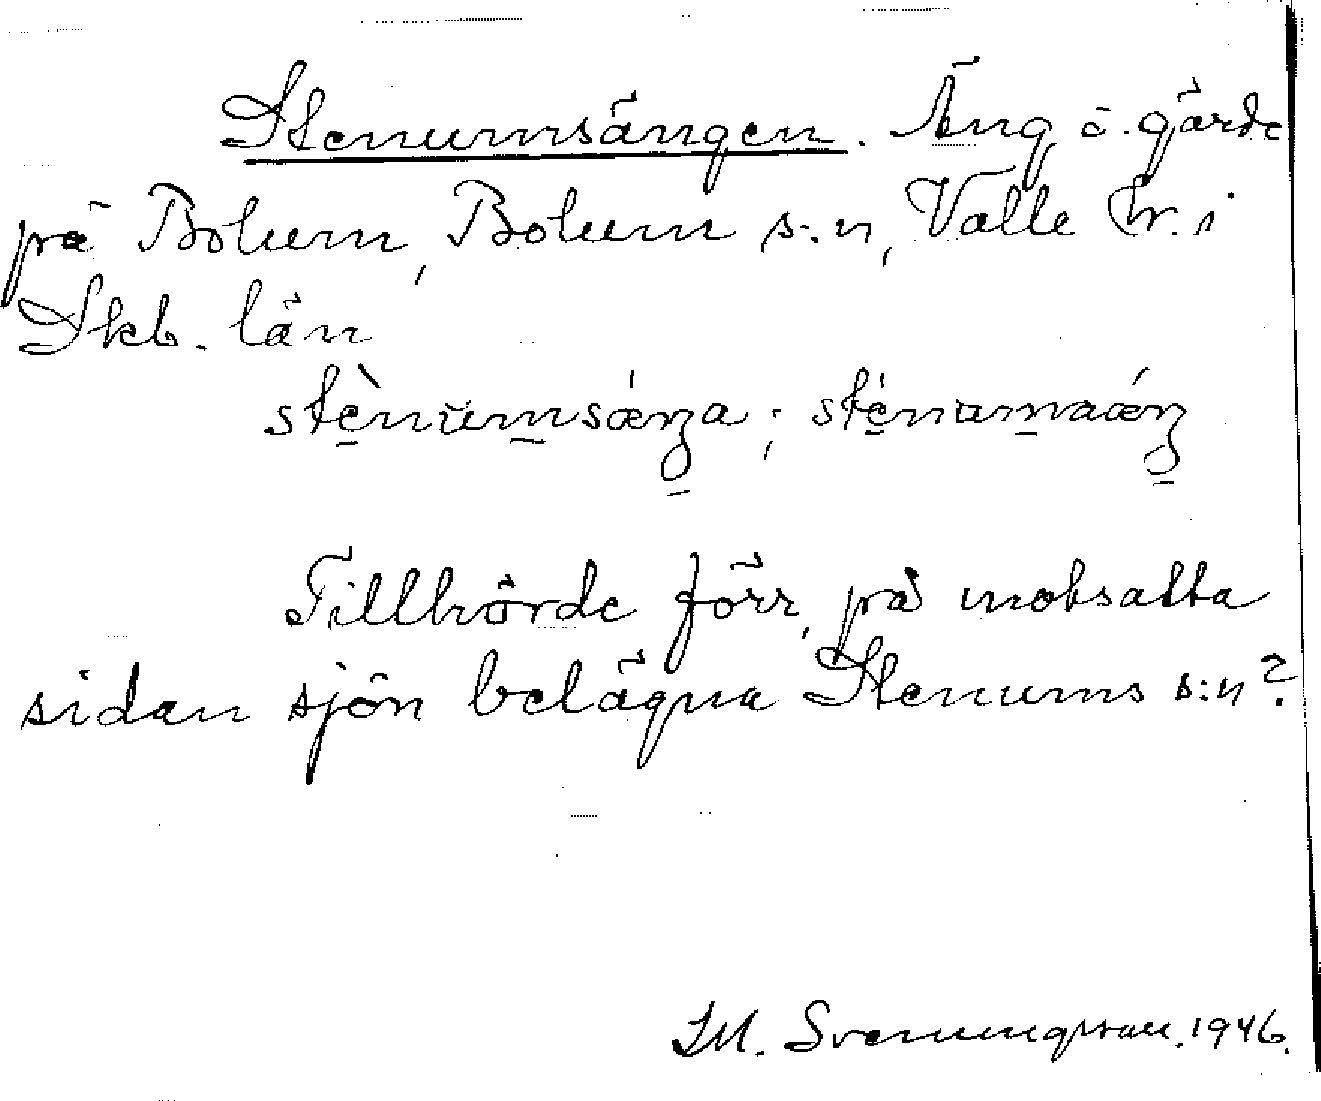 Stenumsängen. Äng o. gärde
på Bolum, Bolum s:n, Valle hr. i
Skb. län
stènumsæŋa; sténumaæŋ
Tillhörde förr, på motsatta
sidan sjön belägna Stenums s:n?
M. Svenungsson. 1946.